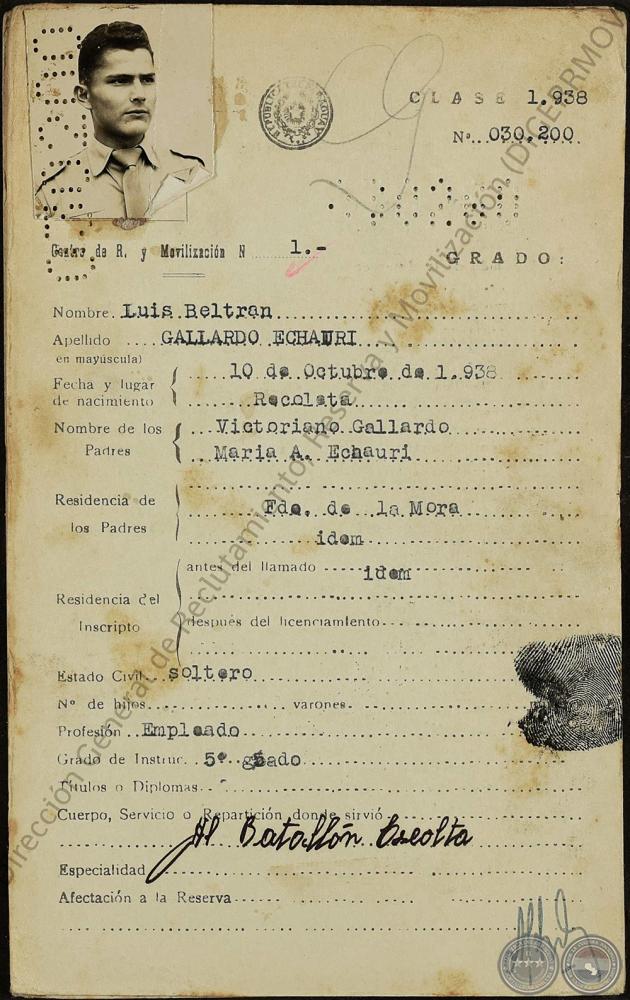 REPUBLICA DEL PARAGUAY
CLASE 1.938
Nº 030,200
Centro de R. y Movilización N 1.-
GRADO:
Nombre. Luis Beltran
Apellido GALLARDO ECHAURI
en mayúscula)
Fecha y lugar de nacimiento 10 de Octubre de 1.938
Recoleta
Nombre de los Padres Victoriano Gallardo
Maria A. Echauri
Residencia de los Padres Fdo. de la Mora
idem
Residencia del Inscripto antes del llamado idem
después del licenciamiento
Estado Civil soltero
Nº de hijos varones
Profesión Empleado
Grado de Instruc. 5º grado
Títulos o Diplomas -
Cuerpo, Servicio o Repartición donde sirvió
Al Batallón Escolta
Especialidad
Afectación a la Reserva
Dirección General de Reclutamiento, Reserva y Movilización (DIGERRMOV